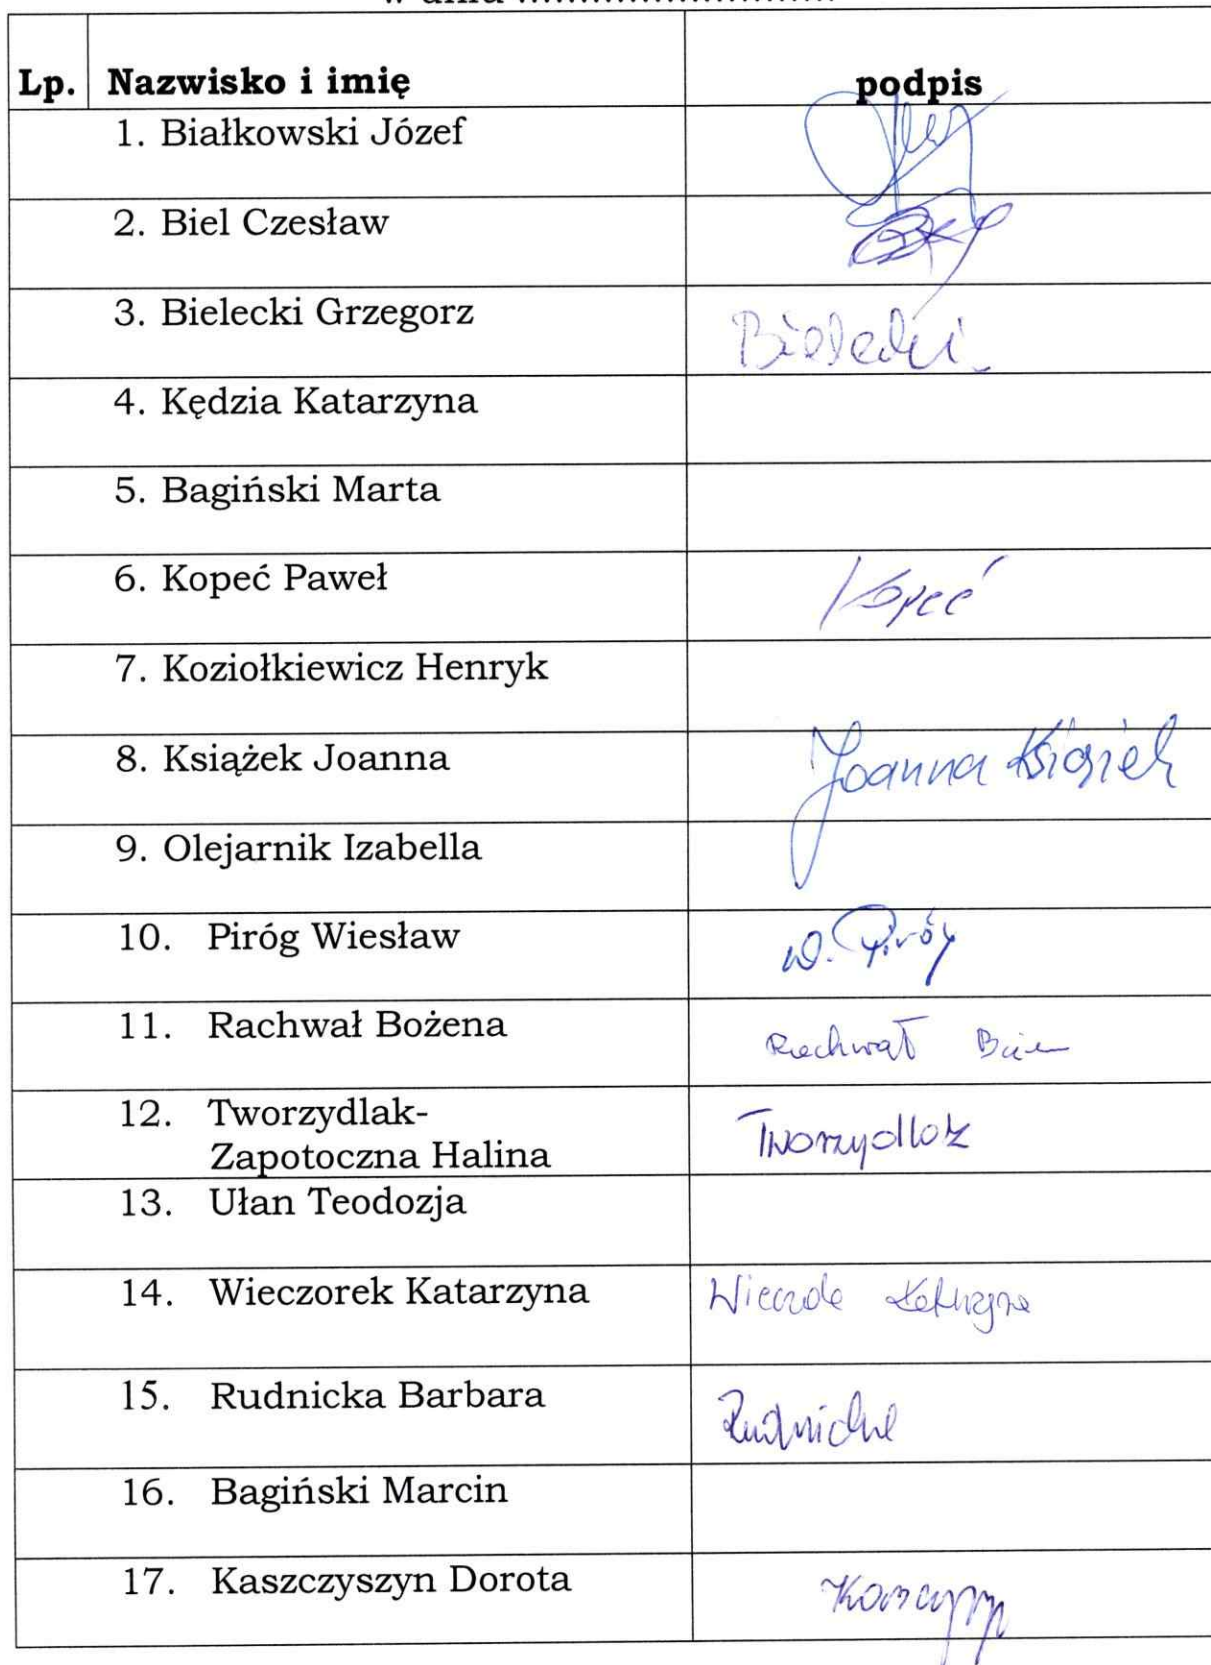 w dniu ................................
Lp. Nazwisko i imię podpis
1. Białkowski Józef
2. Biel Czesław
3. Bielecki Grzegorz Bielecki
4. Kędzia Katarzyna
5. Bagiński Marta
6. Kopeć Paweł Kopeć
7. Koziołkiewicz Henryk
8. Książek Joanna Joanna Książek
9. Olejarnik Izabella
10. Piróg Wiesław W. Piróg
11. Rachwał Bożena Rachwał
12. Tworzydlak- Tworzydlak
Zapotoczna Halina
13. Ułan Teodozja
14. Wieczorek Katarzyna Katarzyna
15. Rudnicka Barbara Rudnicka
16. Bagiński Marcin
17. Kaszczyszyn Dorota